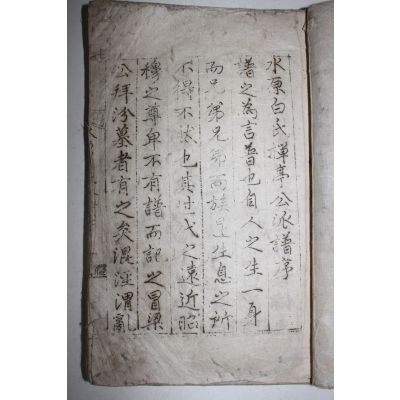 水原白氏挥亭公派譜序
譜之為言普也自人之生一身
而兄弟兄弟而族是生息之所
不得不然也其世代之遠近昭
穆之尊卑不有譜而記之冒梁
公拜汾墓者有之矣混涇渭亂